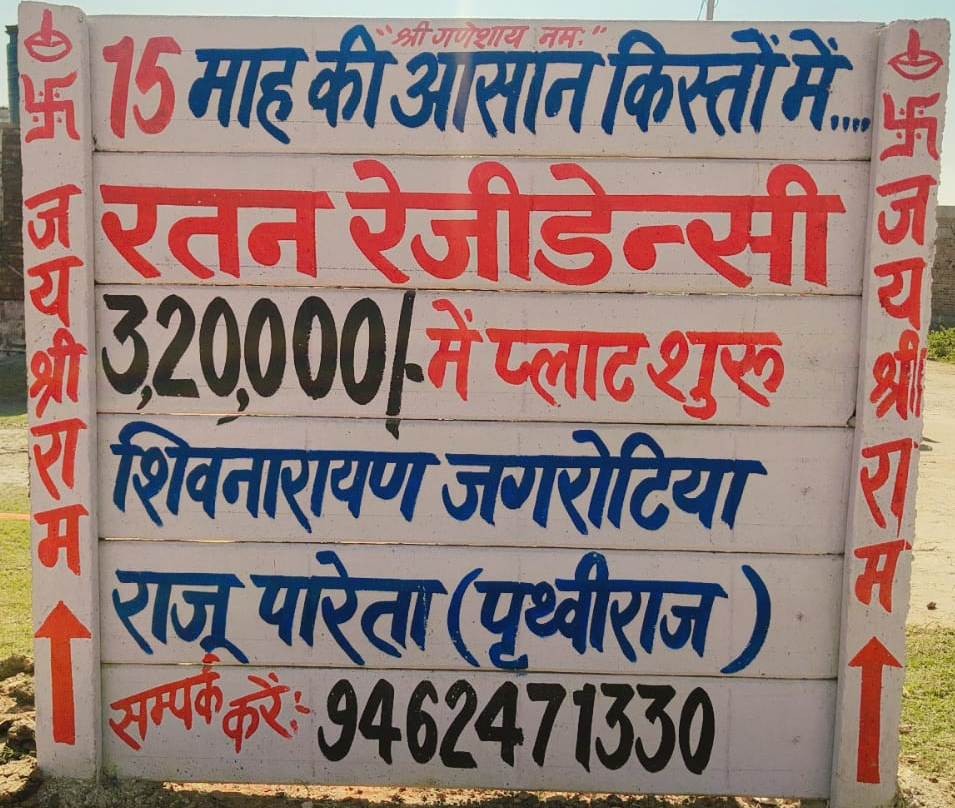 "श्री गणेशाय नमः"
15 माह की आसान किस्तों में....
रतन रेजीडेन्सी
3,20,000/- में प्लाट शुरू
शिवनारायण जगरोटिया
राजू पारेता (पृथ्वीराज)
सम्पर्क करें:- 9462471330
जय श्री राम
जय श्री राम